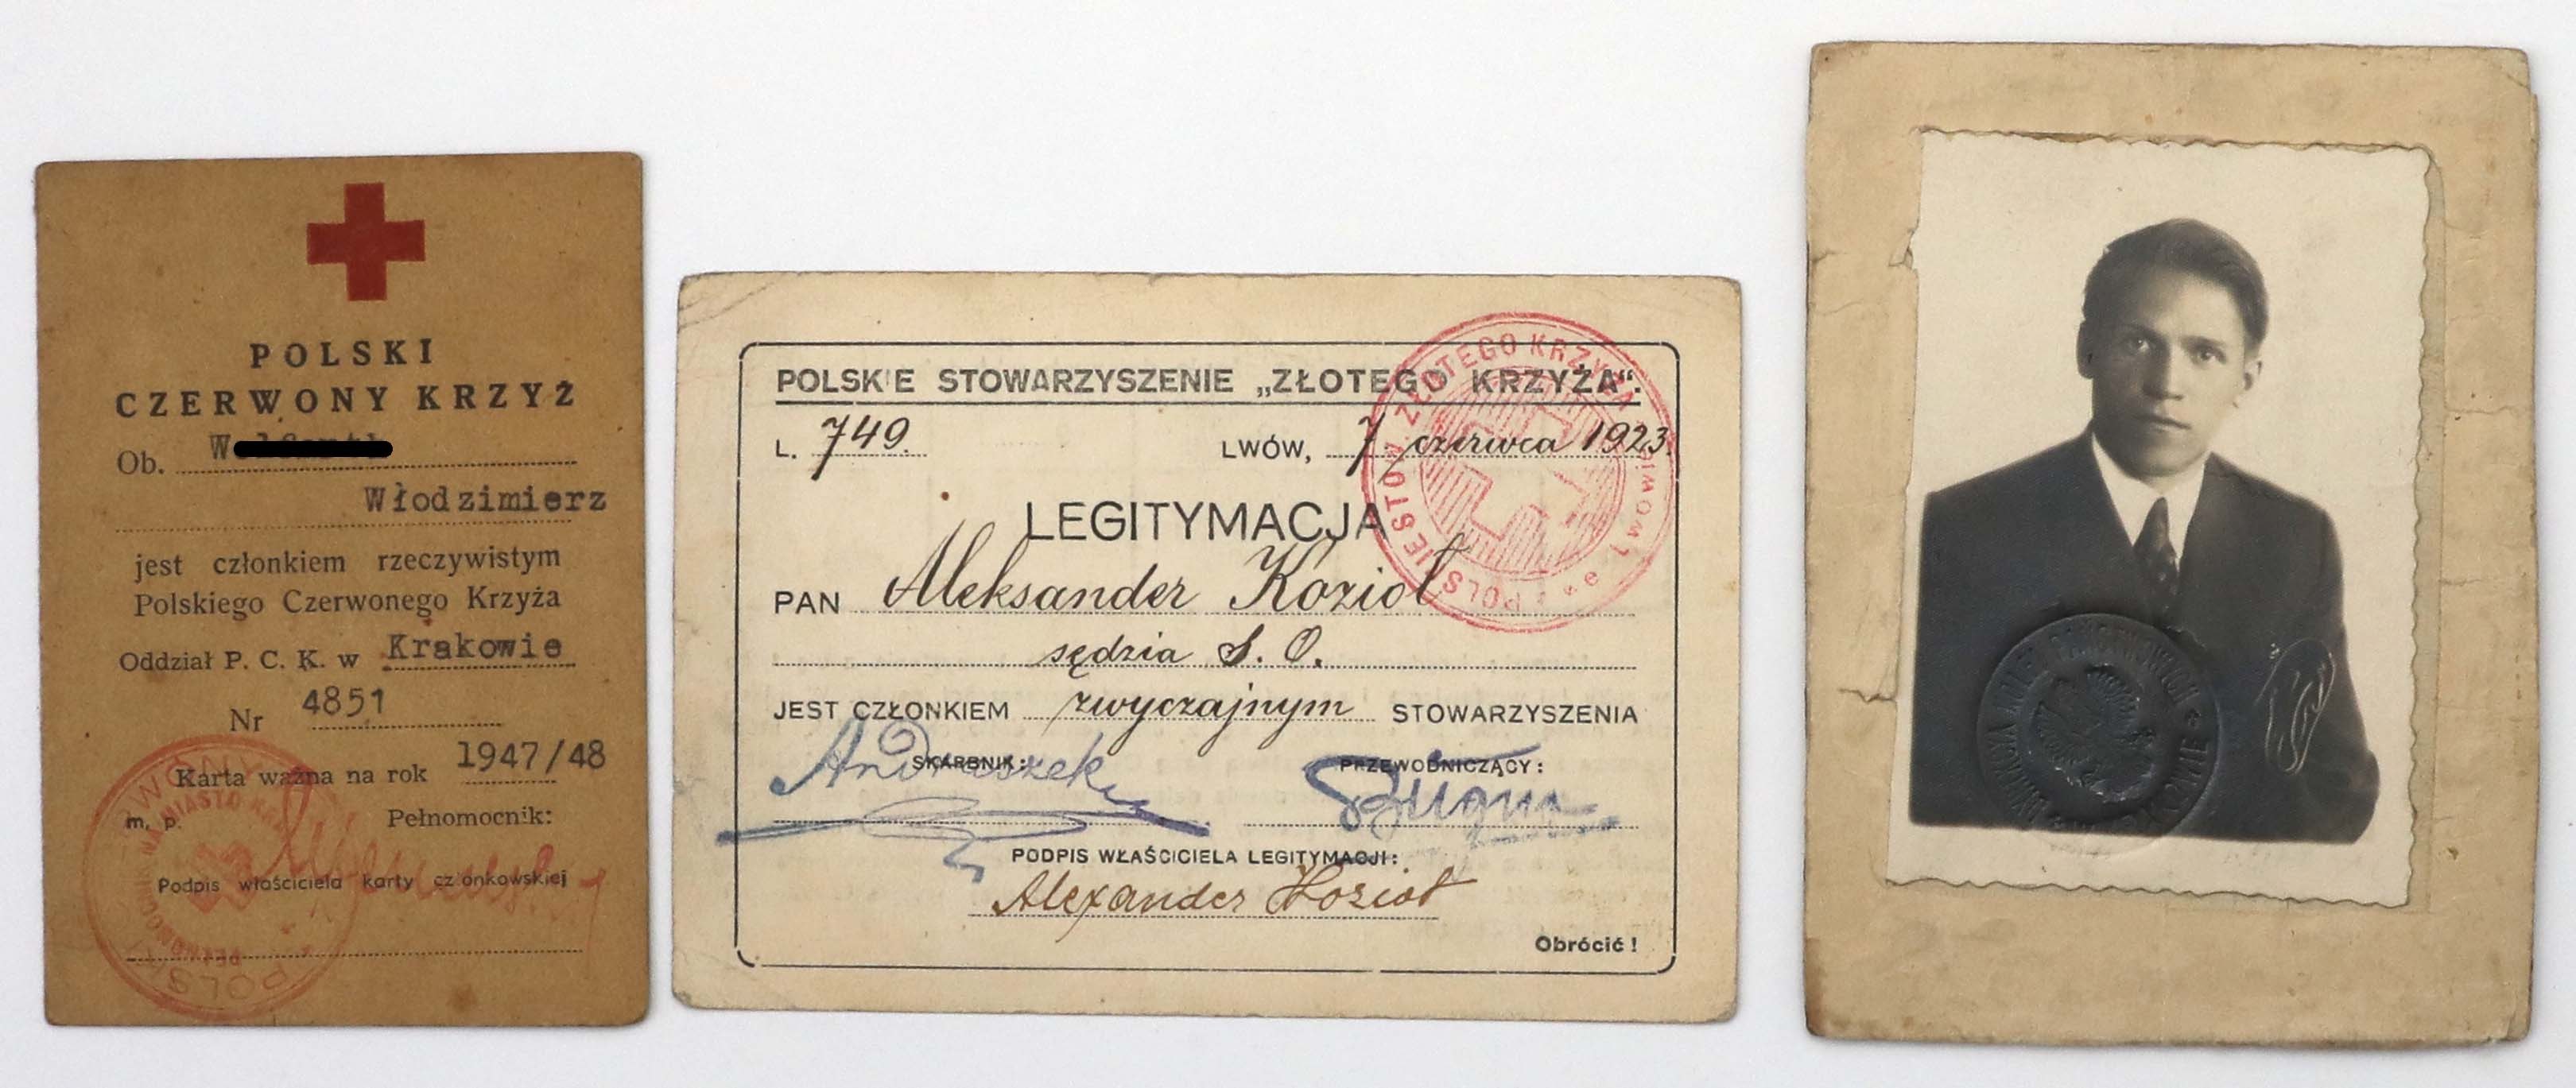 POLSKI
CZERWONY KRZYŻ
Ob. W
Włodzimierz
jest członkiem rzeczywistym
Polskiego Czerwonego Krzyża
Oddział P. C. K. w Krakowie
Nr 4851
Karta ważna na rok 1947/48
m. p. Pełnomocnik:
Podpis właściciela karty członkowskiej
POLSKIE STOWARZYSZENIE „ZŁOTEGO KRZYŻA".
L. 749. LWÓW, 7 czerwca 1923.
LEGITYMACJA
PAN Aleksander Kozioł
sędzia S. O.
JEST CZŁONKIEM zwyczajnym STOWARZYSZENIA
SKARBNIK: PRZEWODNICZĄCY:
PODPIS WŁAŚCICIELA LEGITYMACJI:
Alexander Kozioł
Obrócić!
ZŁOTEGO KRZYŻA